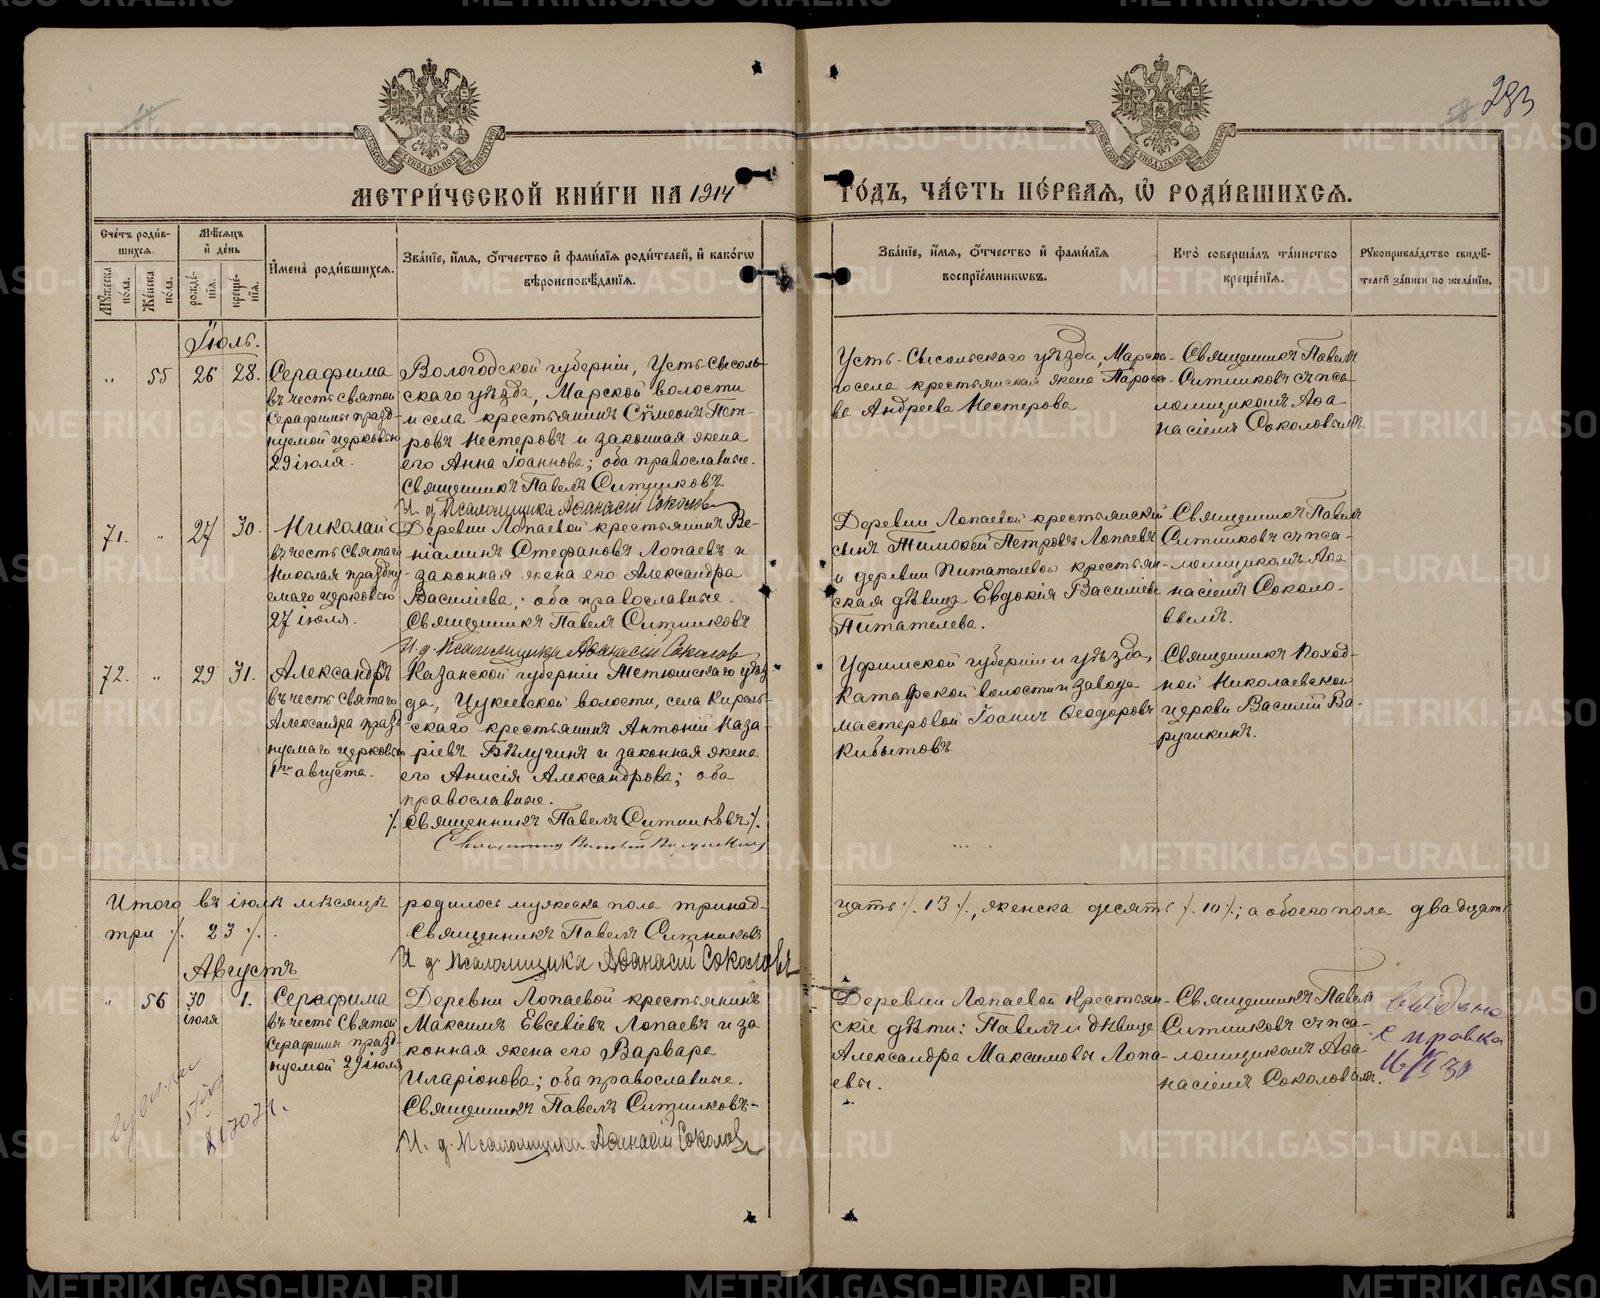 283
МЕТРИЧЕСКОЙ КНИГИ НА 1914
ГОДЪ, ЧАСТЬ ПЕРВАЯ, Ѿ РОДИВШИХСЯ.
Счетъ родив-
шихся.
Мужеска
пола.
Женска
пола.
Мѣсяцъ
и день
рожде-
нія.
креще-
нія.
Имена родившихся.
Званіе, имя, отчество и фамилія родителей, и какогѡ
вѣроисповѣданія.
Званіе, имя, отчество и фамилія
воспріемниковъ.
Кто совершалъ таинство
крещенія.
Рукоприкладство свидѣ-
телей записи по желанію.
Іюль.
" 55 26 28.
Серафима
въ честь святой
Серафимы празд-
нуемой церковью
29 іюля.
Вологодской губерніи, Усть-Сысоль-
скаго уѣзда, Марской волости
и села крестьянинъ Сѵмеонъ Пет-
ровъ Нестеровъ и законная жена
его Анна Іоаннова; оба православные.
Священникъ Павелъ Ситниковъ
И. д. Псаломщика Аѳанасій Соколовъ
Усть-Сысольскаго уѣзда, Марска-
го села крестьянская жена Параске-
ва Андреева Нестерова
Священникъ Павелъ
Ситниковъ съ пса-
ломщикомъ Аѳа
насіемъ Соколовымъ.
71. " 27 30.
Николай
въ честь Святаго
Николая празdну-
емаго церковью
27 іюля.
Деревни Лопаевой крестьянинъ Ве-
ніаминъ Стефановъ Лопаевъ и
законная жена его Александра
Васильева; оба православные.
Священникъ Павелъ Ситниковъ
И. д. Псаломщика Аѳанасій Соколовъ
Деревни Лопаевой крестьянскій
сынъ Тимоѳей Петровъ Лопаевъ
и деревни Питателевой крестьян-
ская дѣвица Евдокія Васильева
Питателева.
Священникъ Павелъ
Ситниковъ съ пса-
ломщикомъ Аѳа
насіемъ Соколо-
вымъ.
72. " 29 31.
Александръ
въ честь святаго
Александра празд-
нуемаго церковью
1го августа.
Казанской губерніи Тетюшскаго уѣз-
да, Цукеевской волости, села Кирель-
скаго крестьянинъ Антоній Наза-
ріевъ Бѣлугинъ и законная жена
его Анисія Александрова; оба
православные.
./. Священникъ Павелъ Ситниковъ ./.
Уфимской губерніи и уѣзда,
Катавской волости и завода
мастеровой Іоаннъ Ѳеодоровъ
Кибытовъ
Священникъ Поход-
ной Николаевской
церкви Василій Ва-
ручкинъ.
Итого въ іюлѣ мѣсяцѣ родилось мужеска пола тринад-
цать ./. 13 ./., женска десять ./. 10 ./.; а обоего пола двадцать
три ./. 23 ./.
Священникъ Павелъ Ситниковъ
И. д. Псаломщика Аѳанасій Соколовъ
Августъ
" 56 30 іюля 1.
Серафима
въ честь Святой
Серафимы празд-
нуемой 29 іюля
Деревни Лопаевой крестьянинъ
Максимъ Евсевіевъ Лопаевъ и за
конная жена его Варвара
Иларіонова; оба православные.
Священникъ Павелъ Ситниковъ
И. д. Псаломщика Аѳанасій Соколовъ
Деревни Лопаевой крестьян-
скіе дѣти: Павелъ и дѣвица
Александра Максимовы Лопа-
евы.
Священникъ Павелъ
Ситниковъ съ пса-
ломщикомъ Аѳа
насіемъ Соколовымъ.
выдано
справка
METRIKI.GASO-URAL.RU